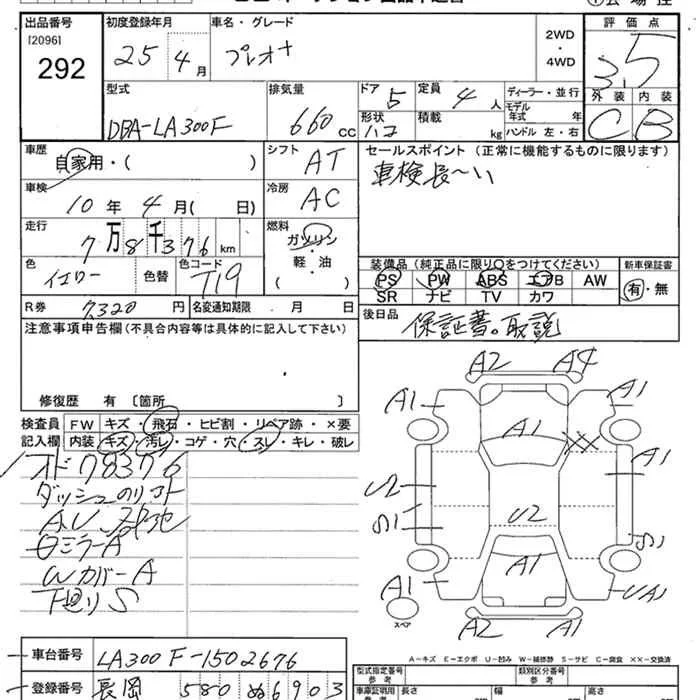 出品番号
[2096]
292
初度登録年月
25 4月
車名・グレード
プレオ+
2WD
・
4WD
評価点
3.5
外装 内装
C B
型式
DBA-LA300F
排気量
660 CC
ドア
5
形状
ハコ
定員
4 人
積載
kg
ディーラー・並行
モデル
年式 年
ハンドル 左・右
車歴
自家用・( )
シフト
AT
セールスポイント(正常に機能するものに限ります)
車検長〜い
車検
10年 4月( 日)
冷房
AC
走行
7万8千376km
燃料
ガソリン
・
軽・油
( )
色
イエロー 色替
色コード
T19
装備品(純正品に限り○をつけてください)
PS PW ABS エアB AW
SR ナビ TV カワ
新車保証書
有・無
R券 7320 円
名変通知期限 月 日
後日品
保証書。取説
注意事項申告欄(不具合内容等は具体的に記入して下さい)
修復歴 有 〔箇所 〕
検査員
記入欄
FW キズ・飛石・ヒビ割・リペア跡・×要
内装 キズ・汚レ・コゲ・穴・スレ・キレ・破レ
オド78376
ダッシュのリコト
Wカバー A
下廻りS
A2 A4
A1 A1
A1 ××
A1
U2
S1
U2
S1
A1 A1 UA1
スペア
A2 A1
A-キズ E-エクボ U-凹み W-補修跡 S-サビ C-腐食 ××-交換済
車台番号 LA300F-1502676
登録番号 長岡 580 ぬ6903
型式指定番号
参考
類別区分番号
参考
車庫証明用
参考
長さ
幅